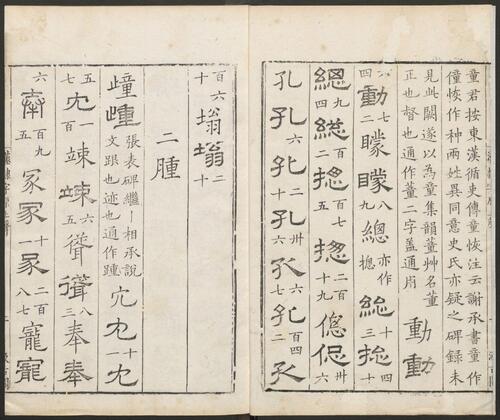 童君按東漢循吏傳童恢注云謝承書童作
僮恢作种兩姓異同意史氏亦疑之碑録未
見此闕遂以為童集韻董艸名董
正也督也通作董二字蓋通用 動動
六十四動七二矇矇八總亦作揔緫三十揔四十
總九四緫百揔百七二揔二百十九偬偬卅六
孔孔六孔二十孔卅六孔六七孔百四二孔
百六十塕塕二十
二腫
歱歱張表碑繼丨相承說文跟也迹也通作踵宂宂一十宂
五七宂一百竦竦六五聳聳八三奉奉
六奉百九五冢冢十一冡二百八七寵寵